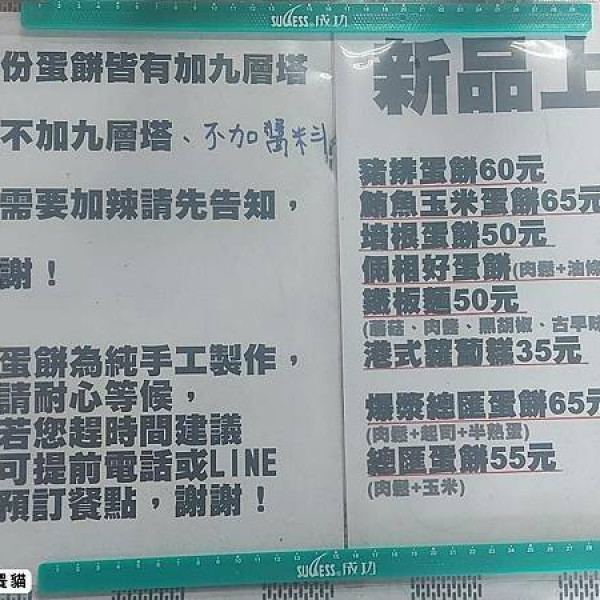 SUCCESS 成功
份蛋餅皆有加九層塔
不加九層塔、不加醬料
需要加辣請先告知，
謝！
蛋餅為純手工製作，
請耐心等候，
若您趕時間建議
可提前電話或LINE
預訂餐點，謝謝！
新品上
豬排蛋餅60元
鮪魚玉米蛋餅65元
培根蛋餅50元
倆相好蛋餅(肉鬆+油條
鐵板麵50元
(蘑菇、肉醬、黑胡椒、古早味
港式蘿蔔糕35元
爆漿總匯蛋餅65元
(肉鬆+起司+半熟蛋)
總匯蛋餅55元
(肉鬆+玉米)
SUCCESS 成功
貓